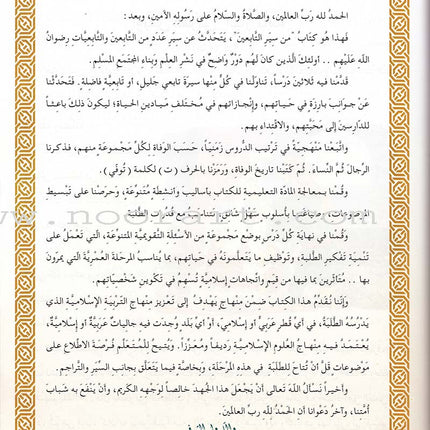 الحمدُ لله ربِّ العالمين، والصَّلاةُ والسَّلامُ على رَسُولِهِ الأمينِ، وبعد:
فَهذا هُو كِتابُ "من سِيَرِ التَّابعينَ"، يَتَحدَّثُ عن سِيَرِ عَدَدٍ من التَّابعينَ والتَّابعيَّاتِ رضوانُ
اللهِ عَلَيْهِم .. أولئِكَ الَّذين كانَ لَهُم دَوْرٌ واضحٌ في نَشْرِ العِلْمِ وبناءِ المجتَمَعِ المسْلِم.
قَدَّمْنا فيه ثلاثينَ دَرْساً، تَناوَلْنا في كُلٍّ منْها سيرَةَ تابعيٍّ جَليلٍ، أو تابِعيَّةٍ فاضِلَةٍ. فَتَحدَّثْنا
عَنْ جوانبَ بارِزَةٍ في حَياتِهم، وإنْجازاتِهم في مُخْتَلَفِ مَياديـنِ الحياةِ؛ ليكونَ ذلِكَ باعِثاً
للدارسينَ إلى مَحَبَّتِهم، والاقْتِداءِ بِهم.
واتَّبعْنا مَنْهجيَّةً في تَرْتيبِ الدُّروسِ زَمَنيّاً، حَسَبَ الوَفاةِ لِكُلِّ مَجْموعَةٍ منهم، فذكرنا
الرِّجالَ ثُمَّ النِّساءَ. ثُمَّ كَتَبْنا تاريخَ الوَفاةِ، ورَمَزْنا بالحرفِ ( ت) لكلمةِ (تُوفّي).
وقُمْنا بـمعالجةِ المادَّةِ التعليميـةِ للكتابِ بأساليبَ وأنشطةٍ مُتَنوِّعَةٍ، وحَرَصْنا على تَبْسيطِ
الموضوعاتِ، صياغتها بأسلوبٍ سَهْلٍ شائقٍ، تتناسبُ مع قُدُراتِ الطَّلبةِ
وقُمْنا في نهايَةِ كُلِّ دَرسٍ بوضعِ مَجْموعَةٍ من الأسئِلَةِ التَّقويميَّةِ المتنوِّعَةِ، التي تَعْمَلُ على
تَنْمِيَةِ تفكيرِ الطَّلَبة، وتَوْظيفِ ما يَتَعلَّمونَهُ في حياتِهم، بما يُناسبُ المرحَلَةَ العُمْريَّةَ التي يمرّونَ
بها .. مُتَأثِّرينَ بما فيها من قِيَمٍ واتِّجاهاتٍ إسلاميَّةٍ تُسْهِمُ في تَكْوينِ شَخْصيَّاتِهم.
وإنَّنا نُقَدِّمُ هذا الكِتابَ ضمنَ مِنْهـاجٍ يَهْدِفُ إلى تعزيزِ مِنْهاجِ التَّرْبِيَةِ الإسلاميَّةِ الذي
يَدْرُسُهُ الطَّلَبَةُ، في أيِّ قُطرٍ عَرَبيٍّ أو إسْلاميٍّ، أوْ أيِّ بَلَدٍ وُجِدَت فيه جالياتٌ عَرَبيَّةٌ أو إسلاميَّةٌ،
يُعْتَمَـدُ فيـه مِنْهـاجُ العُلومِ الإسلاميَّةِ رَديفاً ومُعـزّزاً. ويُتيـحُ للْمُتَعلِّـمِ فُرصَةَ الاطِّلاعِ على
موْضوعاتٍ قلَّ أنْ تُتاحَ للطَّلَبَةِ في هذه المرْحَلةِ، وبِخاصَّةٍ فيما يَتَعلَّقُ بجانبِ السِّيَرِ والتَّراجِمِ.
وأخيراً نَسْألُ اللهَ تَعالى أنْ يَجْعَلَ هذا الجُهْدَ خالِصاً لِوَجْهِهِ الكَريمِ، وأنْ يَنْفَعَ به شَبابَ
أُمَّتِنا، وآخِرُ دَعْوانا أنِ الحَمْدُ لِلَّهِ رَبِّ العالَمينَ.